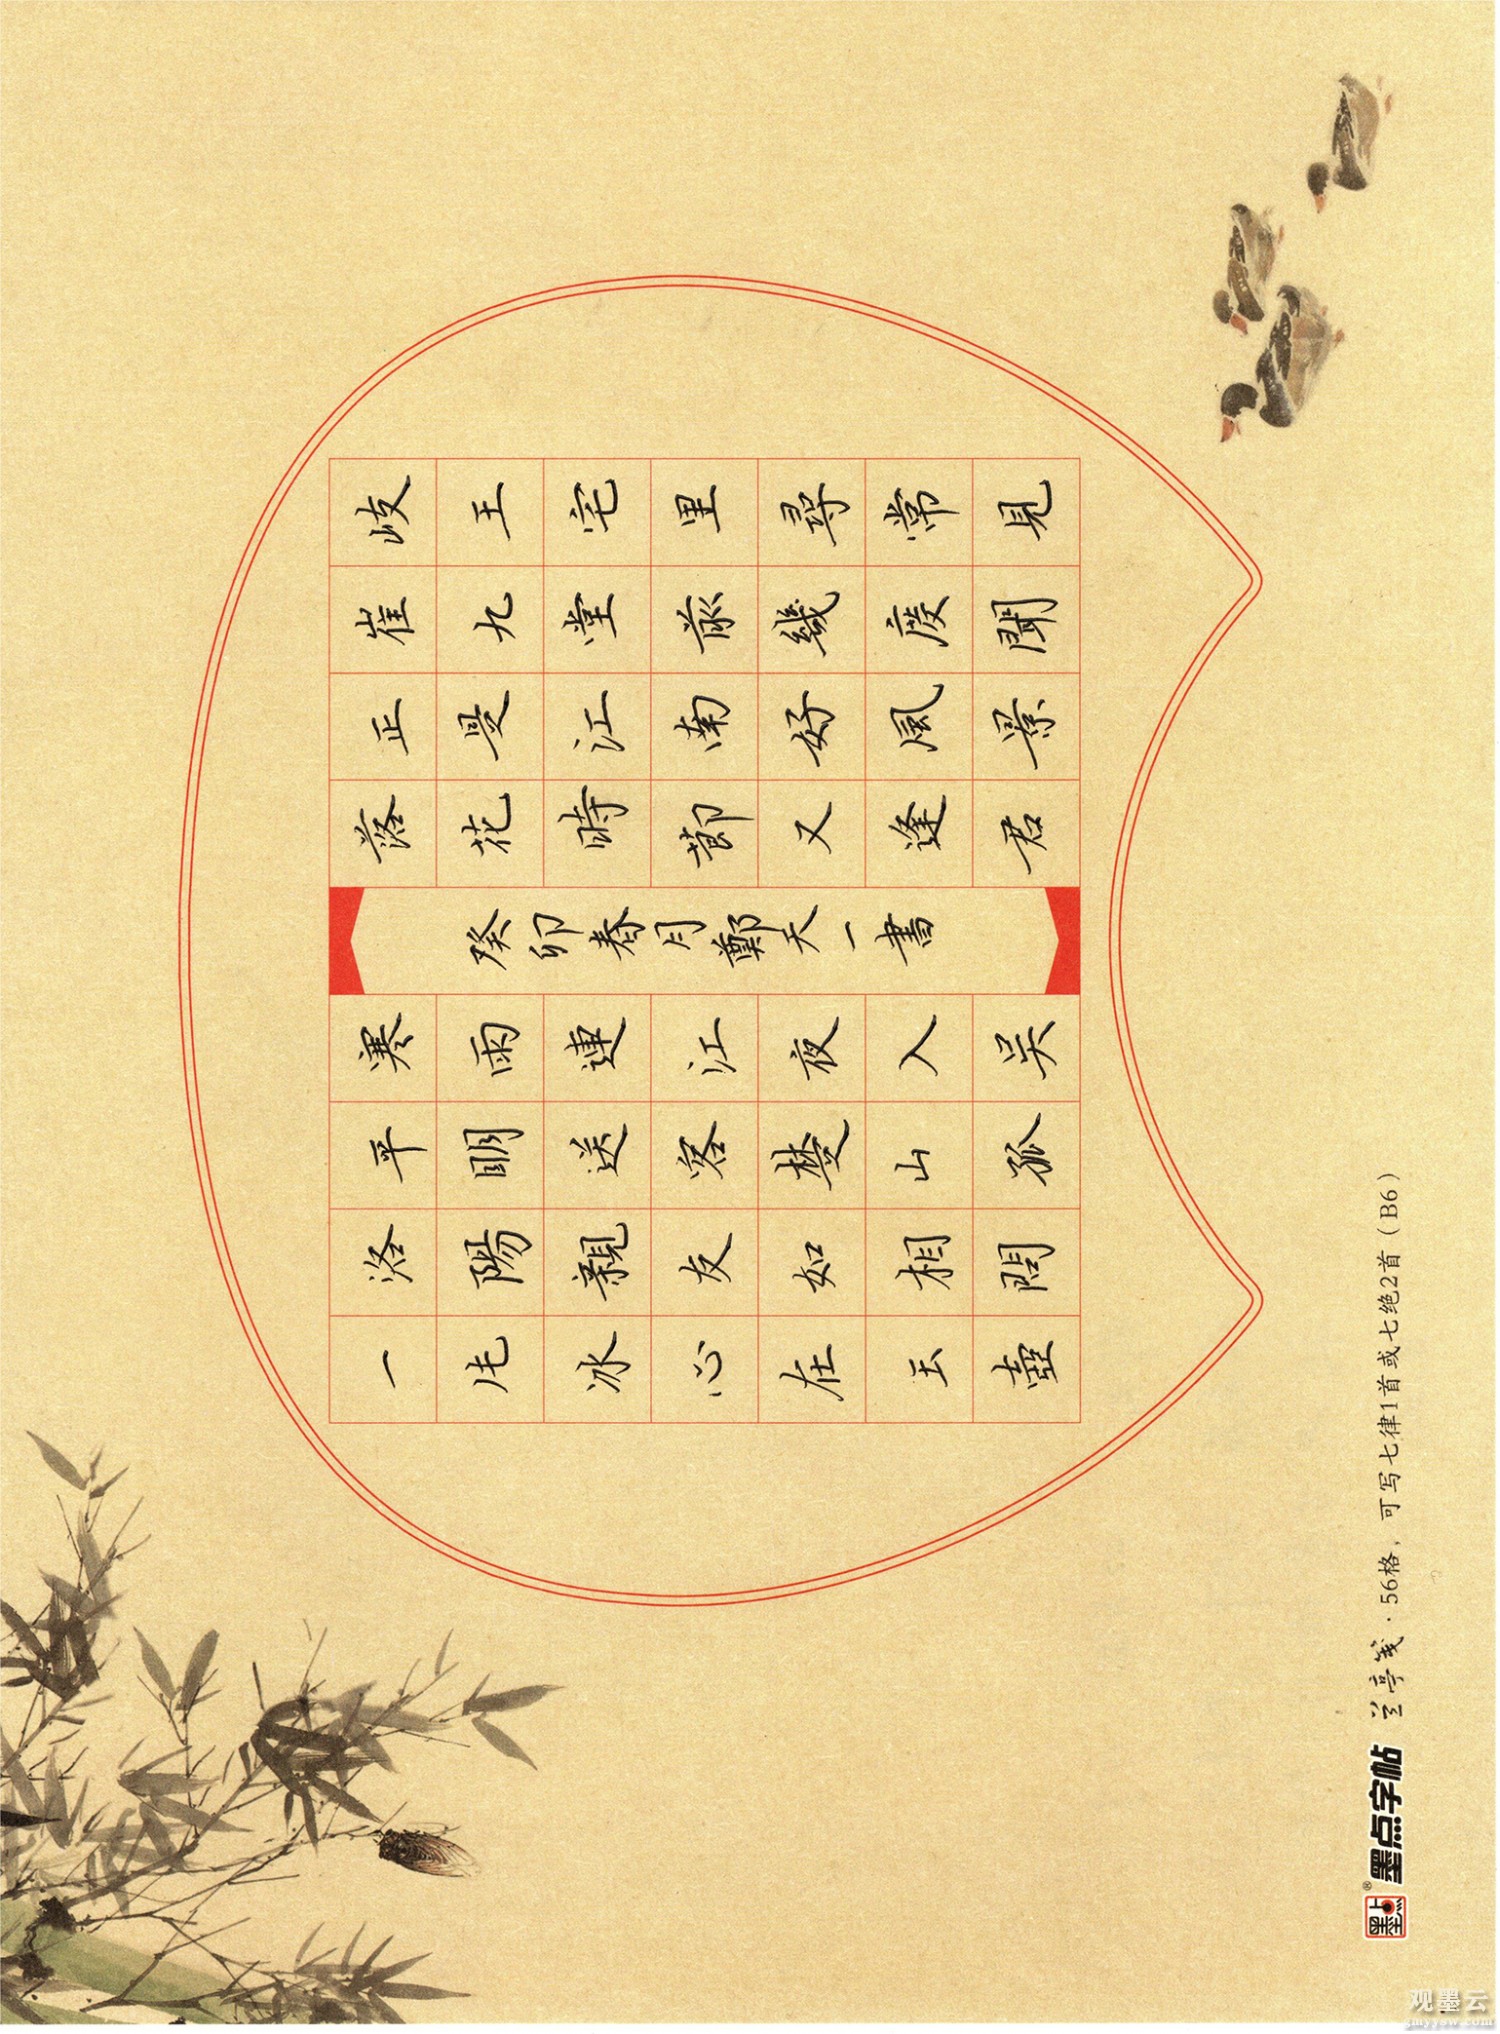 岐王宅里尋常見
崔九堂前幾度聞
正是江南好風景
落花時節又逢君
癸卯春月鄭天一書
寒雨連江夜入吳
平明送客楚山孤
洛陽親友如相問
一片冰心在玉壺
墨点字帖 兰亭笺·56格，可写七律1首或七绝2首（B6）
观墨云
gmyysw.com